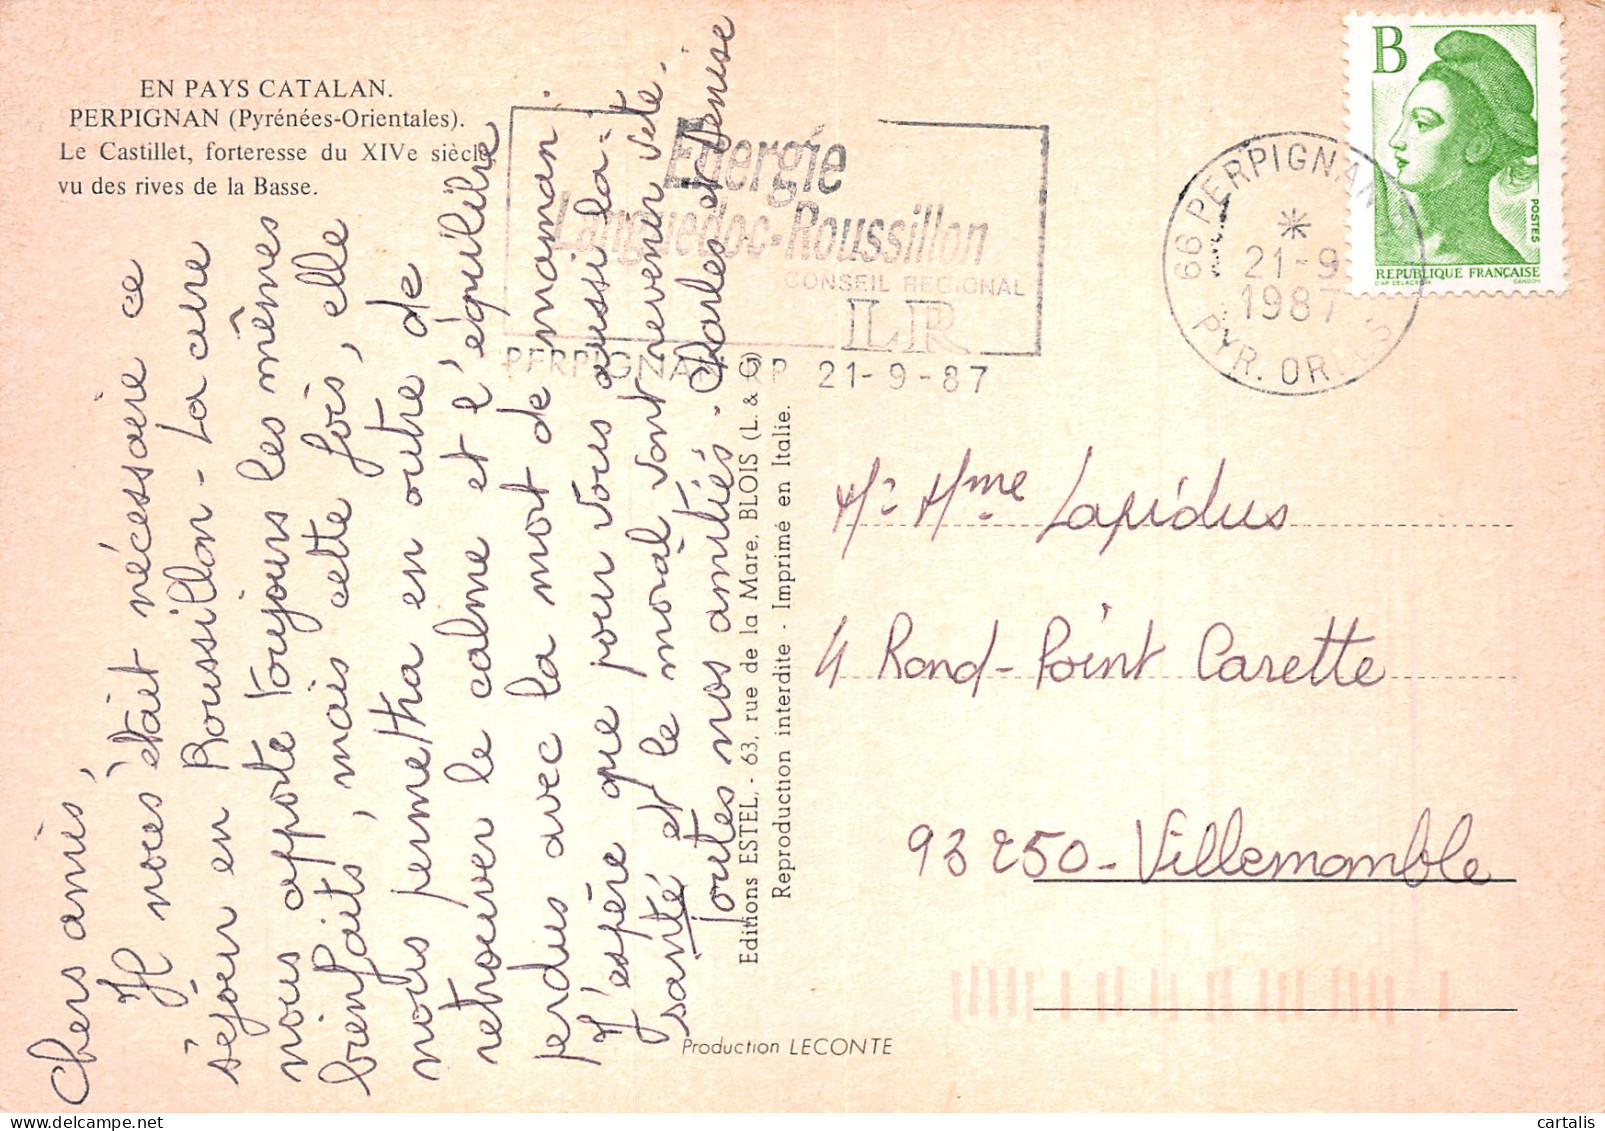 EN PAYS CATALAN.
PERPIGNAN (Pyrénées-Orientales).
Le Castillet, forteresse du XIVe siècle,
vu des rives de la Basse.
Chers amis,
Il nous était nécessaire ce
séjour en Roussillon - La cure
nous apporte toujours les mêmes
bienfaits, mais cette fois, elle
nous permettra en outre de
retrouver le calme et l'équilibre
perdus avec la mort de maman.
J'espère que pour vous aussi la
santé et le moral vont revenir vite.
Toutes nos amitiés. Charles et Denise
Editions ESTEL, - 63, rue de la Mare, BLOIS (L. & C)
Reproduction interdite - Imprimé en Italie.
Production LECONTE
Energie
Languedoc-Roussillon
CONSEIL REGIONAL
LR
PERPIGNAN RP 21-9-87
66 PERPIGNAN
*
21-9
1987
PYR. ORLES
B
POSTES
REPUBLIQUE FRANÇAISE
D'AP DELACROIX GANDON
Mr Mme Lapidus
4 Rond-Point Carette
93250-Villemomble
cartalis